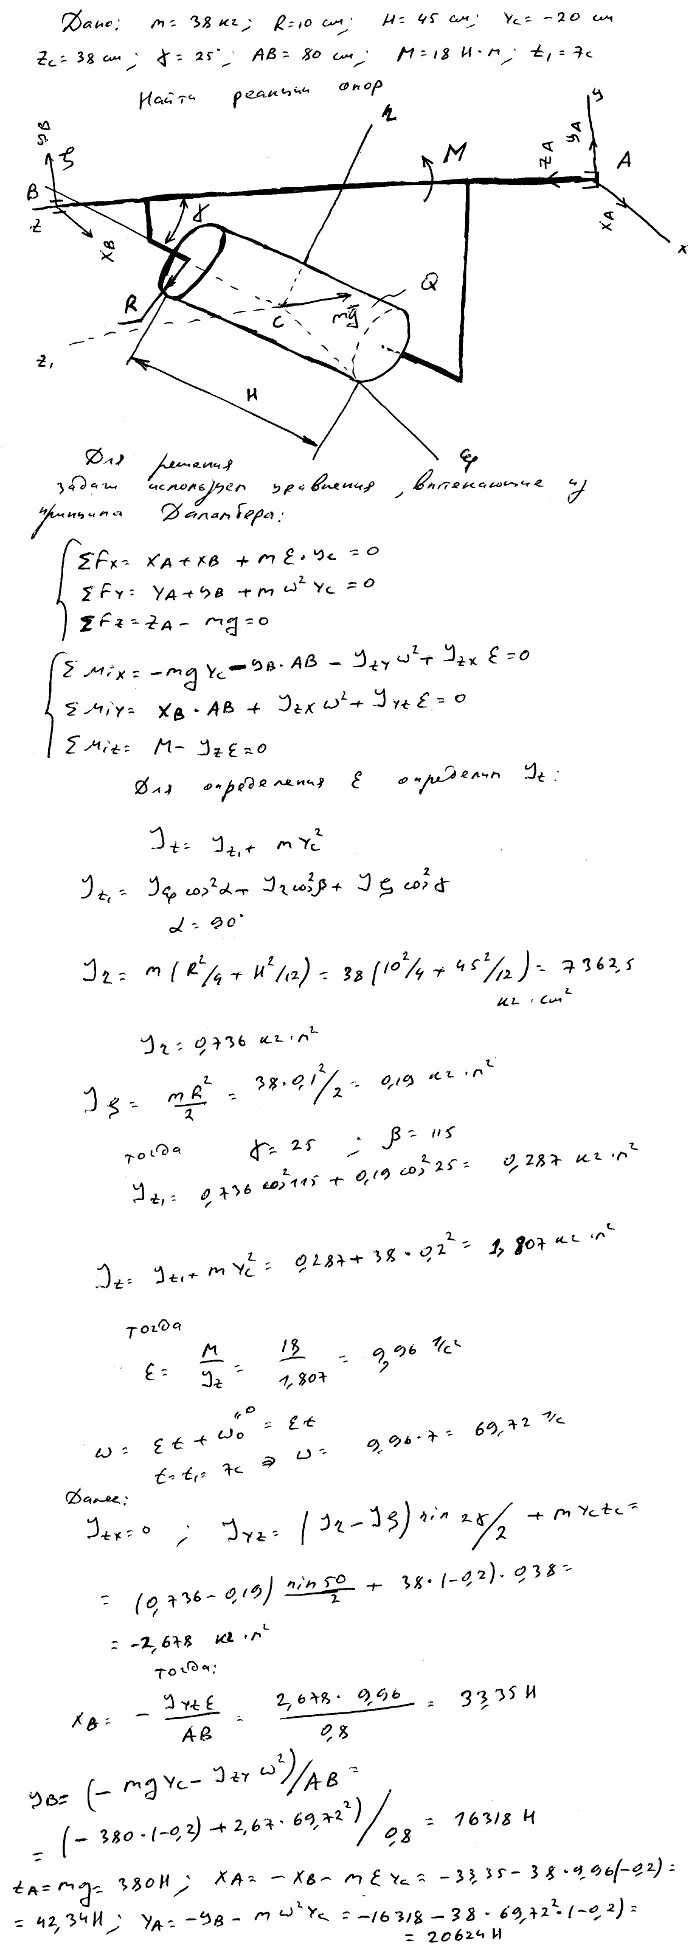 Дано: m = 38 кг; R=10 см; H = 45 см; Yc = -20 см
Zc = 38 см; γ = 25°; AB = 80 см; M = 18 Н·м; t₁ = 7с
Найти реакции опор
yB
ζ
B
z
xB
γ
η
M
zA
yA
y
A
xA
x
R
C
mg
Q
z₁
H
ξ
Для решения
задачи использует уравнения, вытекающие из
принципа Даламбера:
ΣFx = XA + XB + mε·yc = 0
ΣFy: YA + yB + mω²Yc = 0
ΣFz = zA - mg = 0
ΣMix = -mgYc - yB·AB - Jzyω² + Jzxε = 0
ΣMiy = XB·AB + Jzxω² + Jyzε = 0
ΣMiz = M - Jzε = 0
Для определения ε определим Jz:
Jz = Jz₁ + mYc²
Jz₁ = Jξ cos²α + Jη cos²β + Jζ cos²γ
α = 90°
Jη = m(R²/4 + H²/12) = 38(10²/4 + 45²/12) = 7362,5
кг·см²
Jη = 0,736 кг·м²
Jζ = mR²/2 = 38·0,1²/2 = 0,19 кг·м²
тогда γ = 25 ; β = 115
Jz₁ = 0,736 cos²115 + 0,19 cos²25 = 0,287 кг·м²
Jz = Jz₁ + mYc² = 0,287 + 38·0,2² = 1,807 кг·м²
тогда
ε = M/Jz = 18/1,807 = 9,96 1/с²
ω = εt + ω₀ = εt
t = t₁ = 7с ⇒ ω = 9,96·7 = 69,72 1/с
Далее:
Jzx = 0 ; Jyz = (Jη - Jζ) sin 2γ/2 + mYczc =
= (0,736 - 0,19) sin50/2 + 38·(-0,2)·0,38 =
= -2,678 кг·м²
тогда:
XB = - Jyzε/AB = 2,678·9,96/0,8 = 33,35 Н
yB = (-mgYc - Jzyω²)/AB =
= (-380·(-0,2) + 2,67·69,72²)/0,8 = 16318 Н
zA = mg = 380Н; XA = -XB - mεYc = -33,35 - 38·9,96(-0,2) =
= 42,34Н; YA = -yB - mω²Yc = -16318 - 38·69,72²·(-0,2) =
= 20624 Н